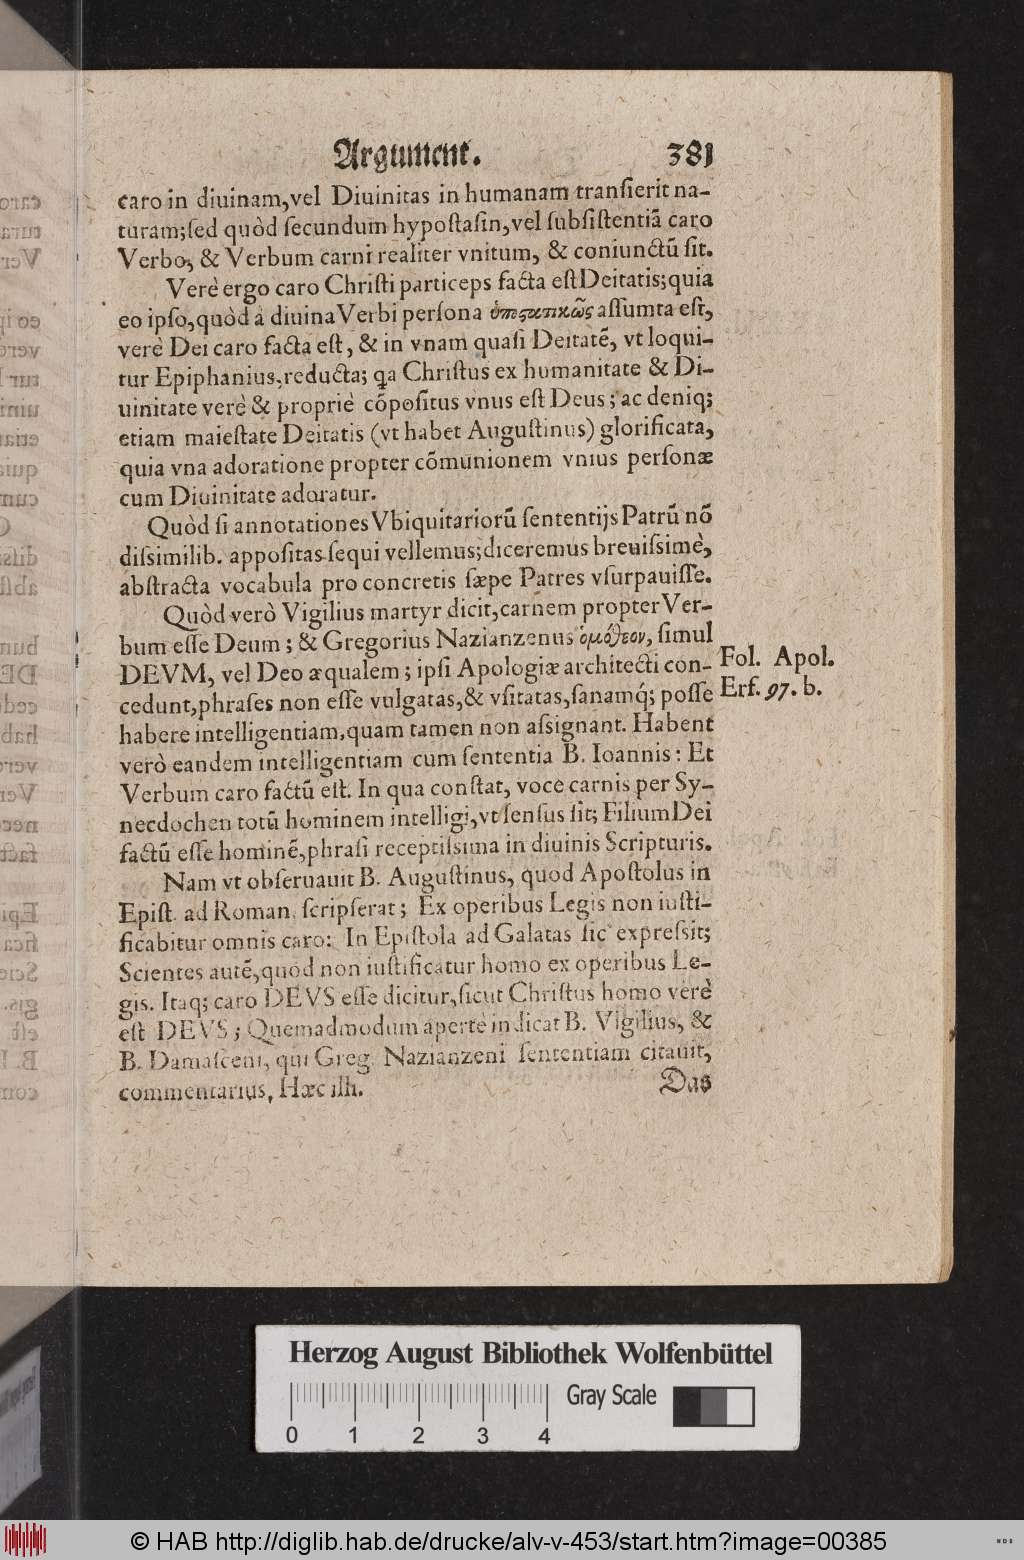 Argument. 381
caro in diuinam,vel Diuinitas in humanam tranſierit na-
turam;ſed quòd ſecundum hypoſtaſin,vel ſubſiſtentiã caro
Verbo, & Verbum carni realiter vnitum, & coniunctũ ſit.
Verè ergo caro Chriſti particeps facta eſt Deitatis;quia
eo ipſo,quòd à diuina Verbi perſona aſſumta eſt,
verè Dei caro facta eſt, & in vnam quaſi Deitatẽ, vt loqui-
tur Epiphanius,reducta; qa Chriſtus ex humanitate & Di-
uinitate verè & propriè cõpoſitus vnus eſt Deus; ac deniq;
etiam maieſtate Deitatis (vt habet Auguſtinus) glorificata,
quia vna adoratione propter cõmunionem vnius perſonæ
cum Diuinitate adoratur.
Quòd ſi annotationes Vbiquitariorũ ſententijs Patrũ nõ
diſsimilib. appoſitas ſequi vellemus;diceremus breuiſsimè,
abſtracta vocabula pro concretis ſæpe Patres vſurpauiſſe.
Quòd verò Vigilius martyr dicit,carnem propter Ver-
bum eſſe Deum; & Gregorius Nazianzenus ὁμόθεον, ſimul
DEVM, vel Deo æqualem; ipſi Apologiæ architecti con-
cedunt,phraſes non eſſe vulgatas,& vſitatas,ſanamq́; poſſe
habere intelligentiam,quam tamen non aſsignant. Habent
verò eandem intelligentiam cum ſententia B. Ioannis: Et
Verbum caro factũ eſt. In qua conſtat, voce carnis per Sy-
necdochen totũ hominem intelligi,vt ſenſus ſit; Filium Dei
factũ eſſe hominẽ,phraſi receptiſsima in diuinis Scripturis.
Nam vt obſeruauit B. Auguſtinus, quod Apoſtolus in
Epiſt. ad Roman. ſcripſerat; Ex operibus Legis non iuſti-
ficabitur omnis caro: In Epiſtola ad Galatas ſic expreſsit;
Scientes autẽ,quòd non iuſtificatur homo ex operibus Le-
gis. Itaq; caro DEVS eſſe dicitur,ſicut Chriſtus homo verè
eſt DEVS; Quemadmodum apertè indicat B. Vigilius, &
B. Damaſceni, qui Greg. Nazianzeni ſententiam citauit,
commentarius, Hæc illi.
Das
Fol. Apol.
Erf. 97. b.
Herzog August Bibliothek Wolfenbüttel
Gray Scale
0 1 2 3 4
© HAB http://diglib.hab.de/drucke/alv-v-453/start.htm?image=00385